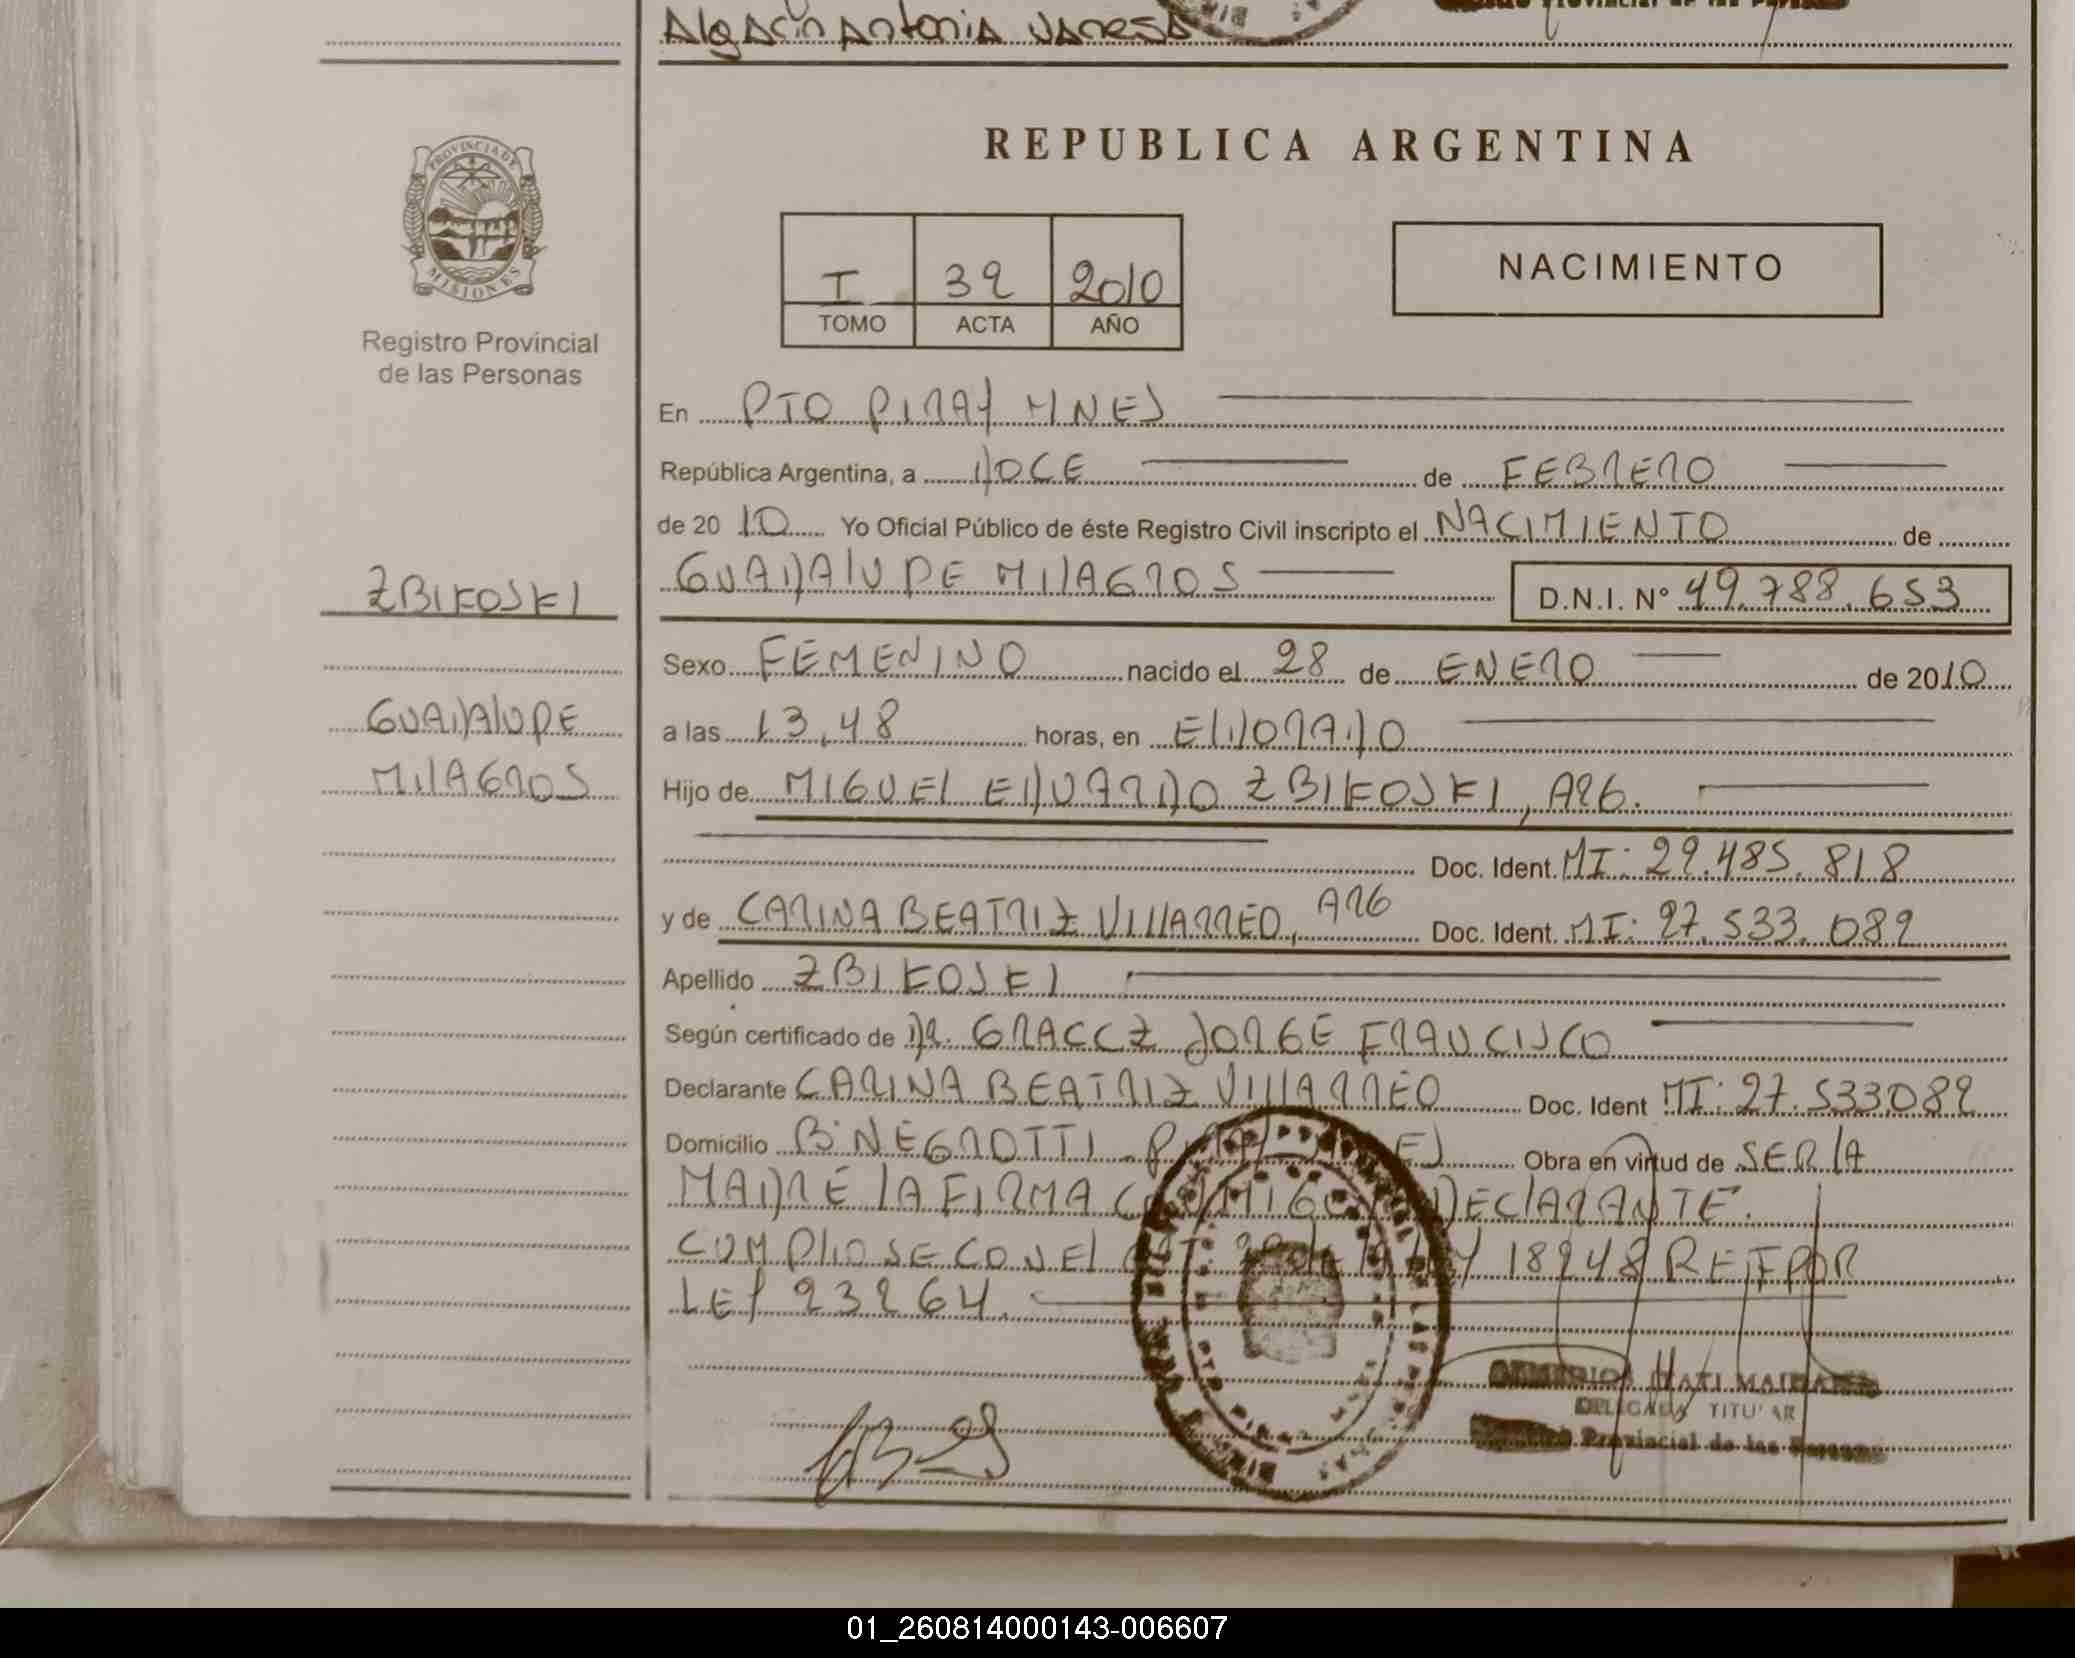 Algarin Antonia Vanesa
REPUBLICA ARGENTINA
PROVINCIA DE
MISIONES
Registro Provincial
de las Personas
I 39 2010
TOMO ACTA AÑO
NACIMIENTO
En PTO PIRAY MNES
República Argentina, a DOCE de FEBRERO
de 2010 Yo Oficial Público de éste Registro Civil inscripto el NACIMIENTO de
GUADALUPE MILAGROS D.N.I. Nº 49.788.653
ZBIKOSKI
Sexo FEMENINO nacido el 28 de ENERO de 2010
GUADALUPE
a las 13,48 horas, en ELDORADO
MILAGROS
Hijo de MIGUEL EDUARDO ZBIKOSKI, ARG.
Doc. Ident. MI: 29.485.818
y de CARINA BEATRIZ VILLARREO, ARG Doc. Ident. MI: 27.533.089
Apellido ZBIKOSKI
Según certificado de DR. JORGE FRANCISCO
Declarante CARINA BEATRIZ VILLARREO Doc. Ident MI: 27.533.089
Domicilio Bº NEGROTTI Obra en virtud de SER LA
MADRE LA FIRMA CONMIGO DECLARANTE.
CUMPLIOSE CON EL 18248 REF POR
LEY 23264.
ITATI MAIDANA
DELEGADA TITULAR
Provincial de las Personas
01_260814000143-006607